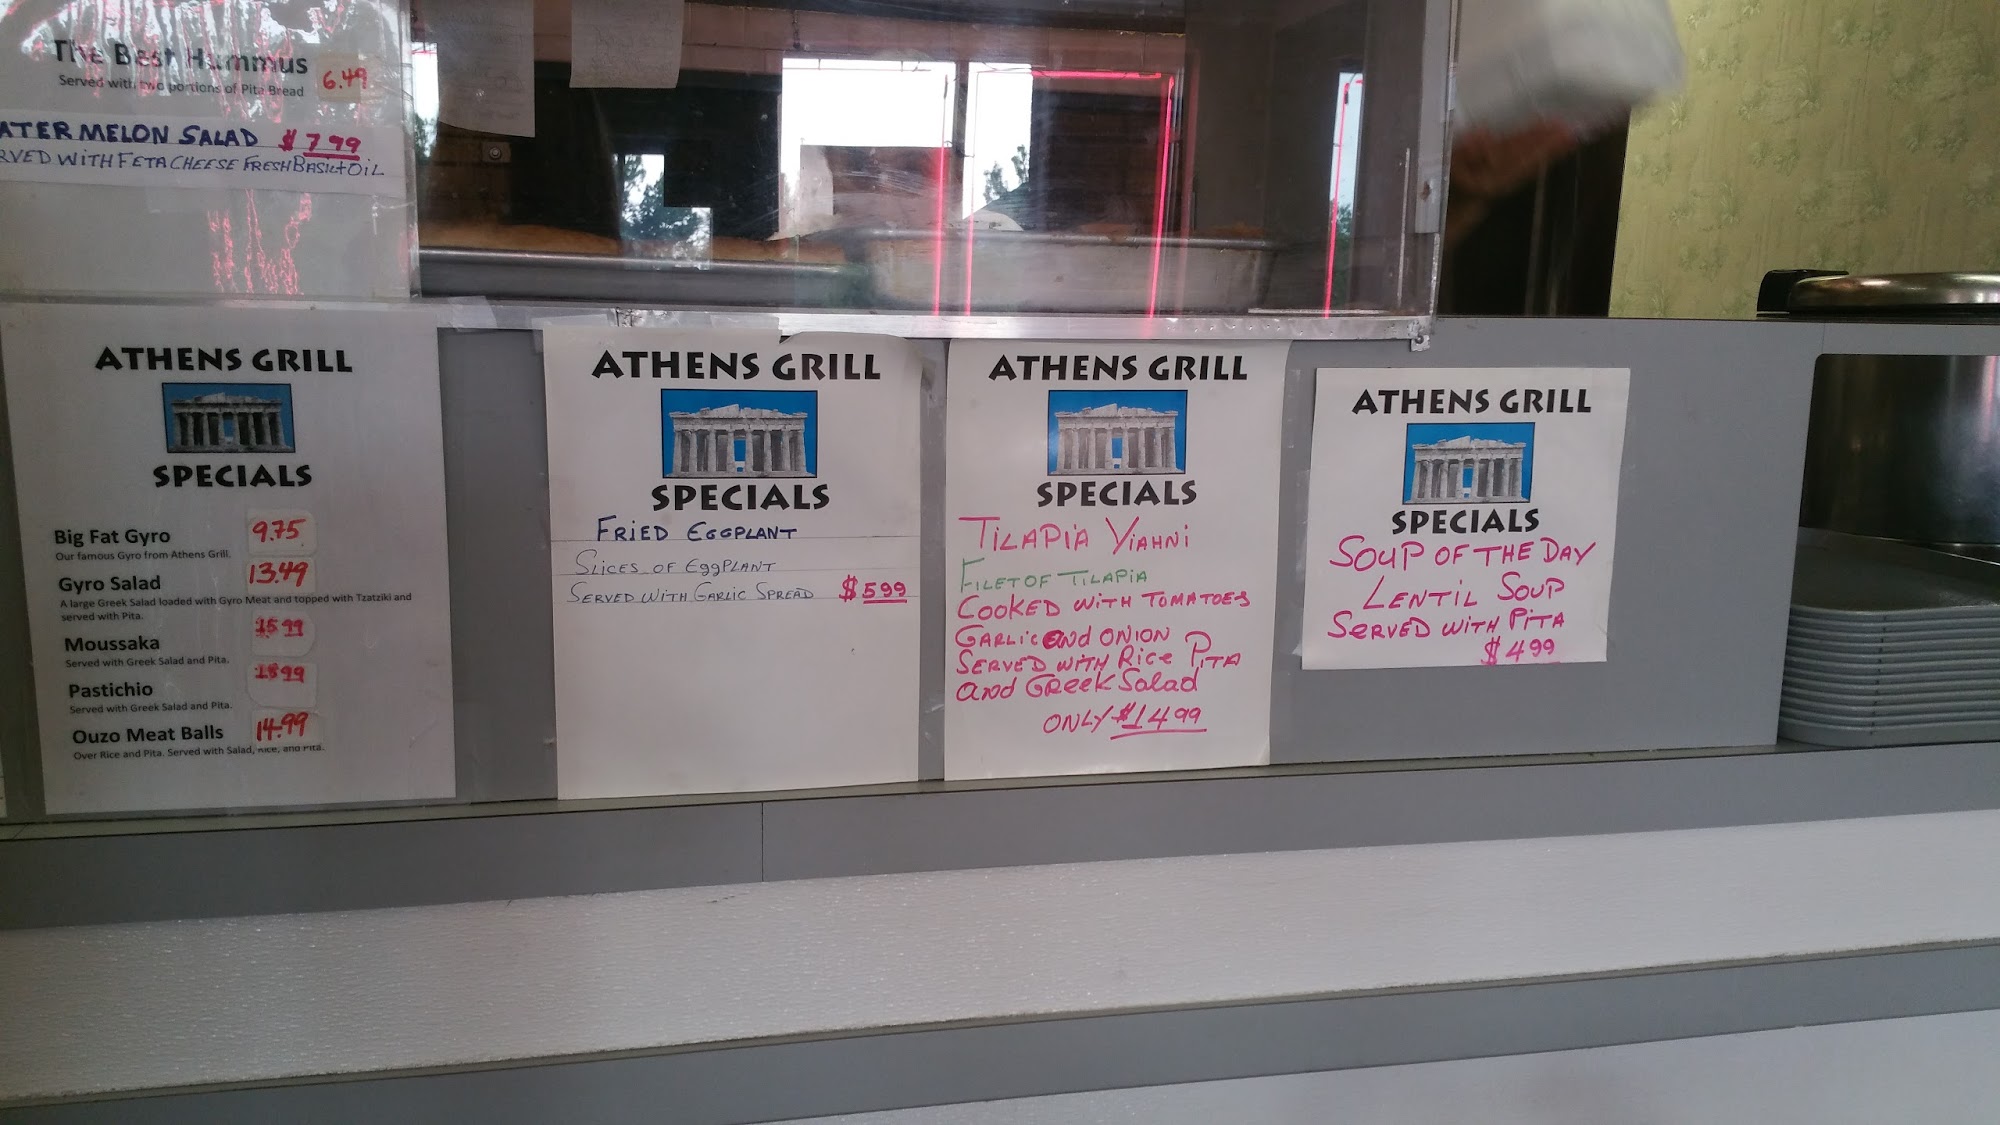 The Best Hummus 6.49
Served with two portions of Pita Bread
ATERMELON SALAD $7.99
RVED WITH FETA CHEESE FRESH BASIL + OIL
ATHENS GRILL
SPECIALS
Big Fat Gyro 9.75
Our famous Gyro from Athens Grill.
Gyro Salad 13.49
A large Greek Salad loaded with Gyro Meat and topped with Tzatziki and
served with Pita.
Moussaka 15.99
Served with Greek Salad and Pita.
Pastichio 15.99
Served with Greek Salad and Pita.
Ouzo Meat Balls 14.99
Over Rice and Pita. Served with Salad, Rice, and Pita.
ATHENS GRILL
SPECIALS
FRIED EGGPLANT
SLICES OF EggPLANT
SERVED WITH GARLIC SPREAD $5 99
ATHENS GRILL
SPECIALS
TILAPiA YiAHNi
FILET OF TILAPiA
COOKED WITH TOMATOES
GARLiC and ONION
SERVED WITH RiCe PiTA
and GReek Salad
ONLY $14 99
ATHENS GRILL
SPECIALS
SOUP OF THE DAY
LENTIL SOUP
SERVED WITH PITA
$4 99